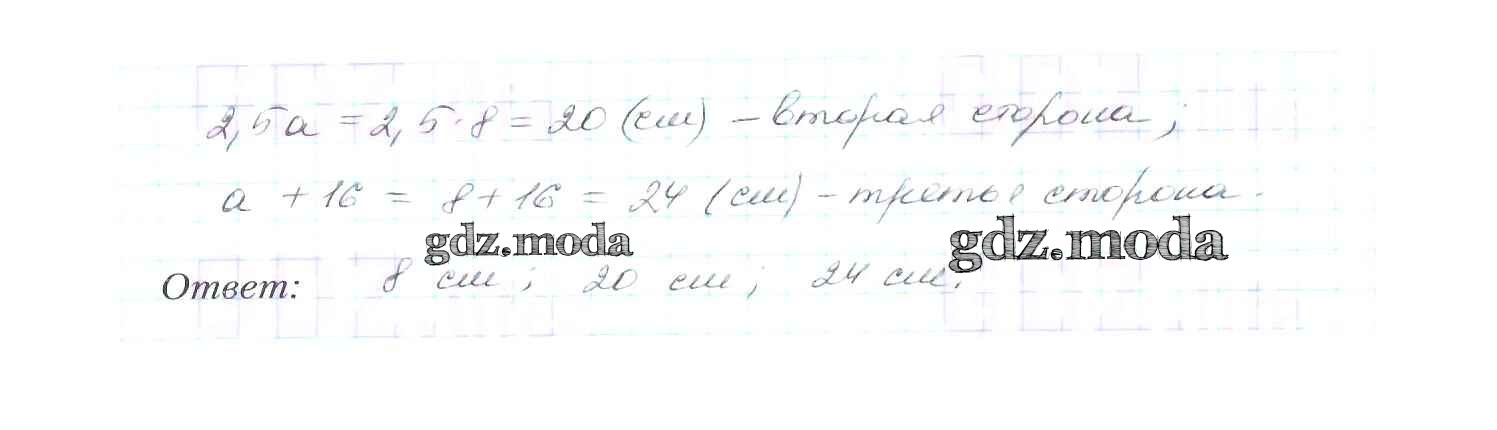 2,5a = 2,5 · 8 = 20 (см) – вторая сторона;
a + 16 = 8 + 16 = 24 (см) – третья сторона.
gdz.moda gdz.moda
Ответ: 8 см; 20 см; 24 см.